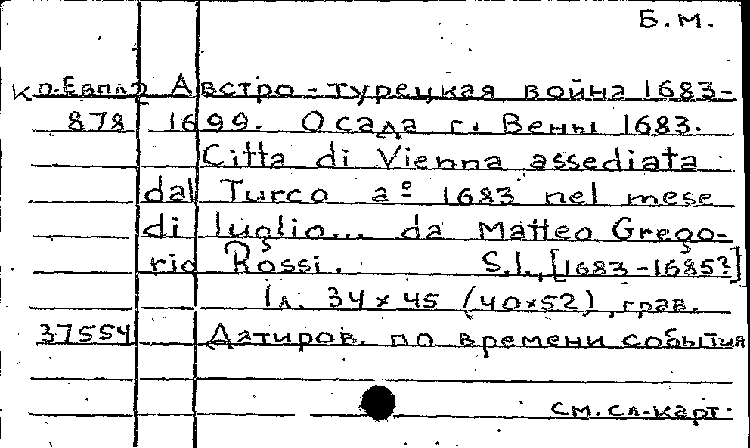 Б.М.
К п.Евпл2 Австро-турецкая война 1683-
878 1699. Осада г. Вены 1683.
Citta di Vienna assediata
dal Turco aº 1683 nel mese
di luglio... da Matteo Grego-
rio Rossi. S.l., [1683-1685?]
1л. 34×45 (40×52), грав.
37554 Датиров. по времени события
см. сл. карт.